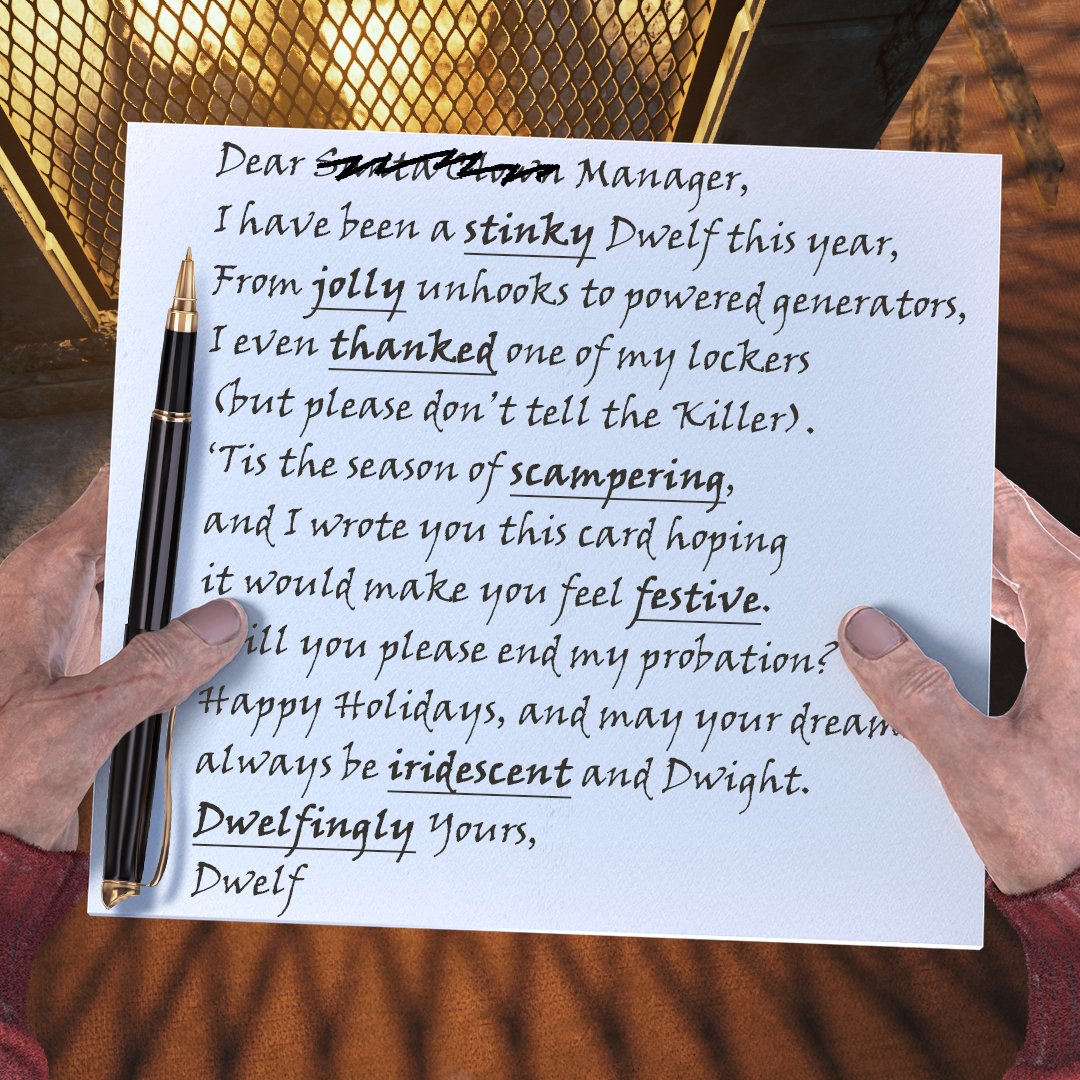 Dear Santa Clown Manager,
I have been a stinky Dwelf this year,
From jolly unhooks to powered generators,
I even thanked one of my lockers
(but please don't tell the Killer).
'Tis the season of scampering,
and I wrote you this card hoping
it would make you feel festive.
ill you please end my probation?
Happy Holidays, and may your dream
always be iridescent and Dwight.
Dwelfingly Yours,
Dwelf